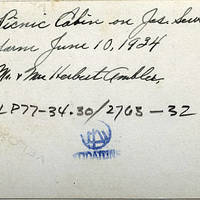 Picnic Cabin on Jas.
Farm June 10, 1934
Mr. & Mrs Herbert Ambler,
LP77-34.30/2703-32